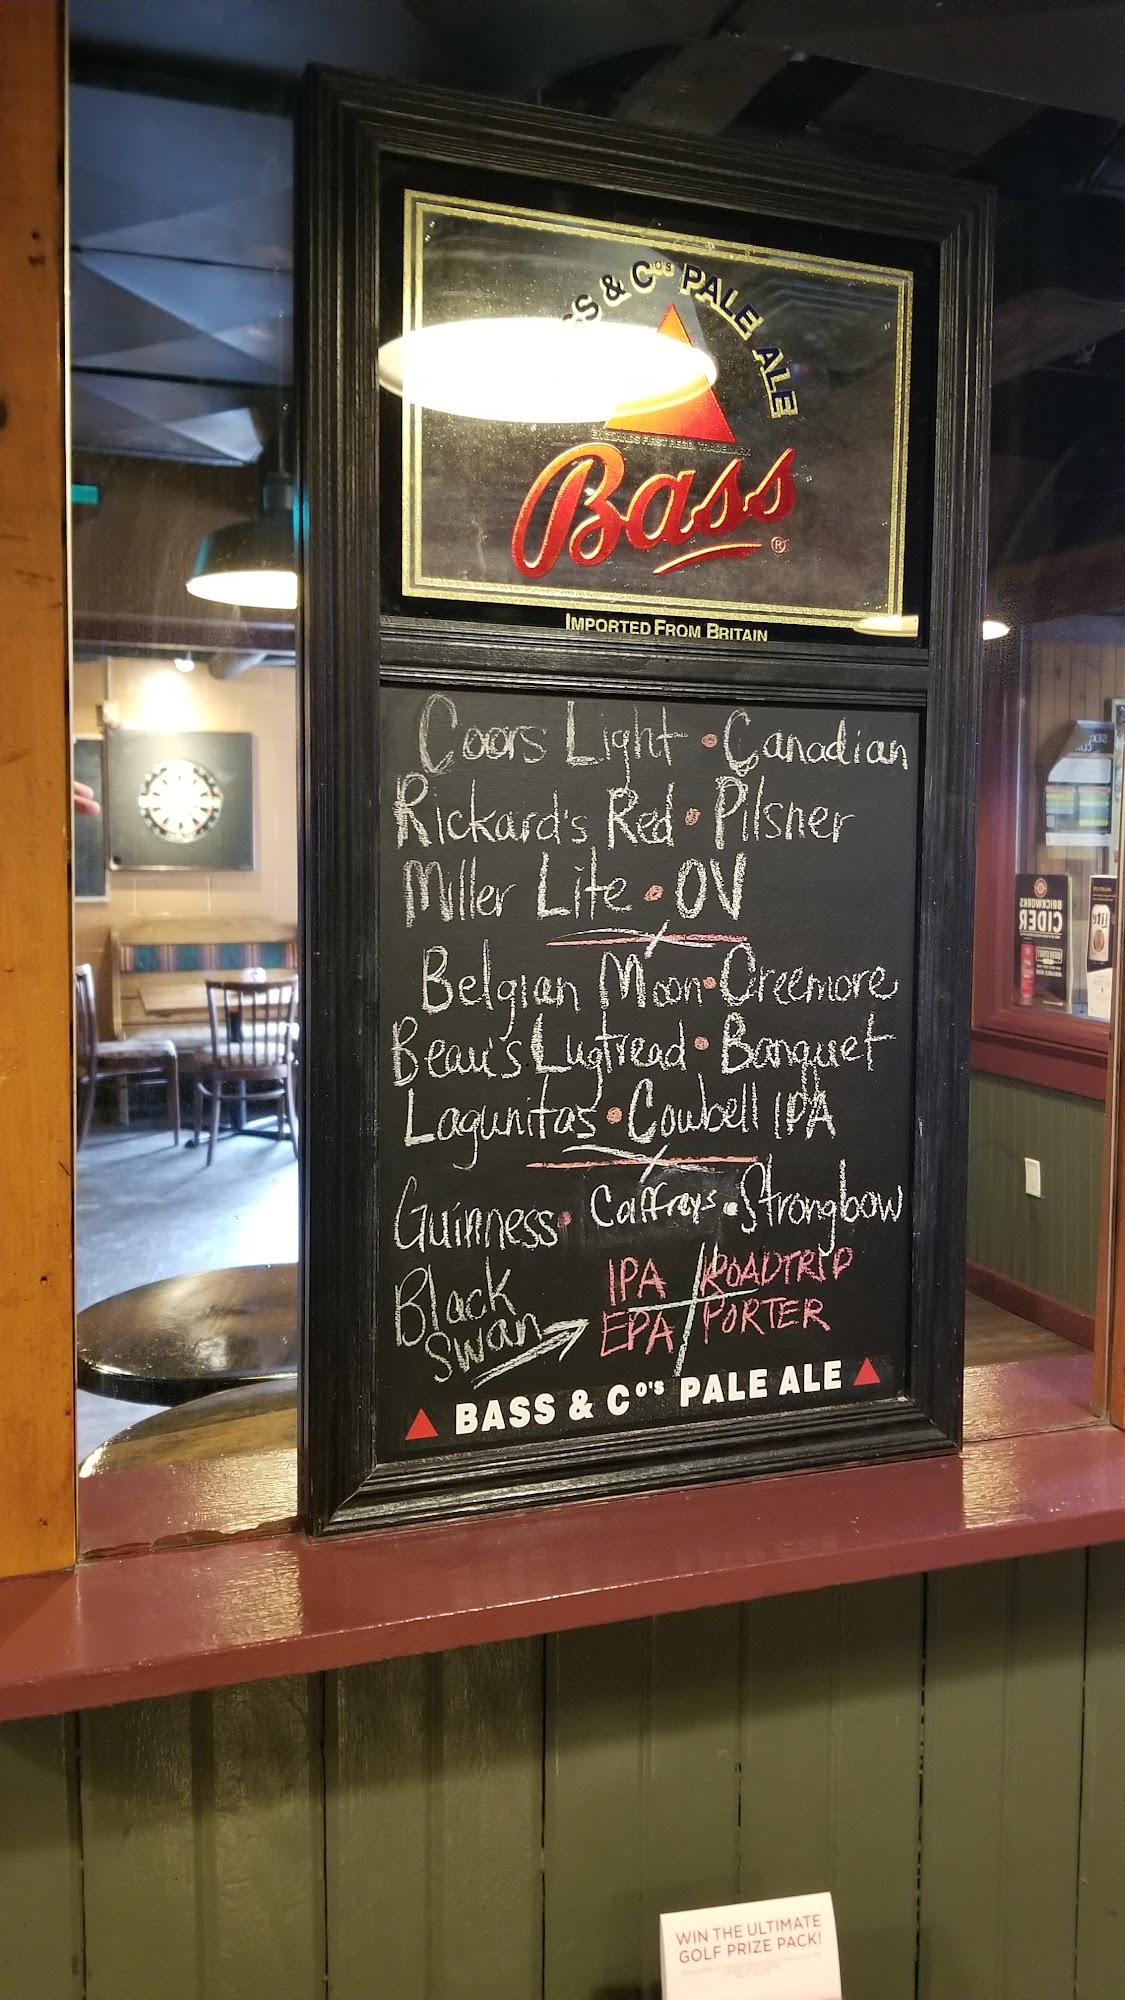 & Cº'S PALE ALE
ENGLAND'S FIRST REGD. TRADEMARK
Bass
®
IMPORTED FROM BRITAIN
Coors Light • Canadian
Rickard's Red • Pilsner
Miller Lite • OV
Belgian Moon • Creemore
Beau's Lugtread • Banquet
Lagunitas • Cowbell IPA
Guinness • Caffreys • Strongbow
Black Swan
IPA
ROADTRIP
EPA
PORTER
BASS & Cº'S PALE ALE
BRICKWORKS
CIDER
Lite
WIN THE ULTIMATE
GOLF PRIZE PACK!